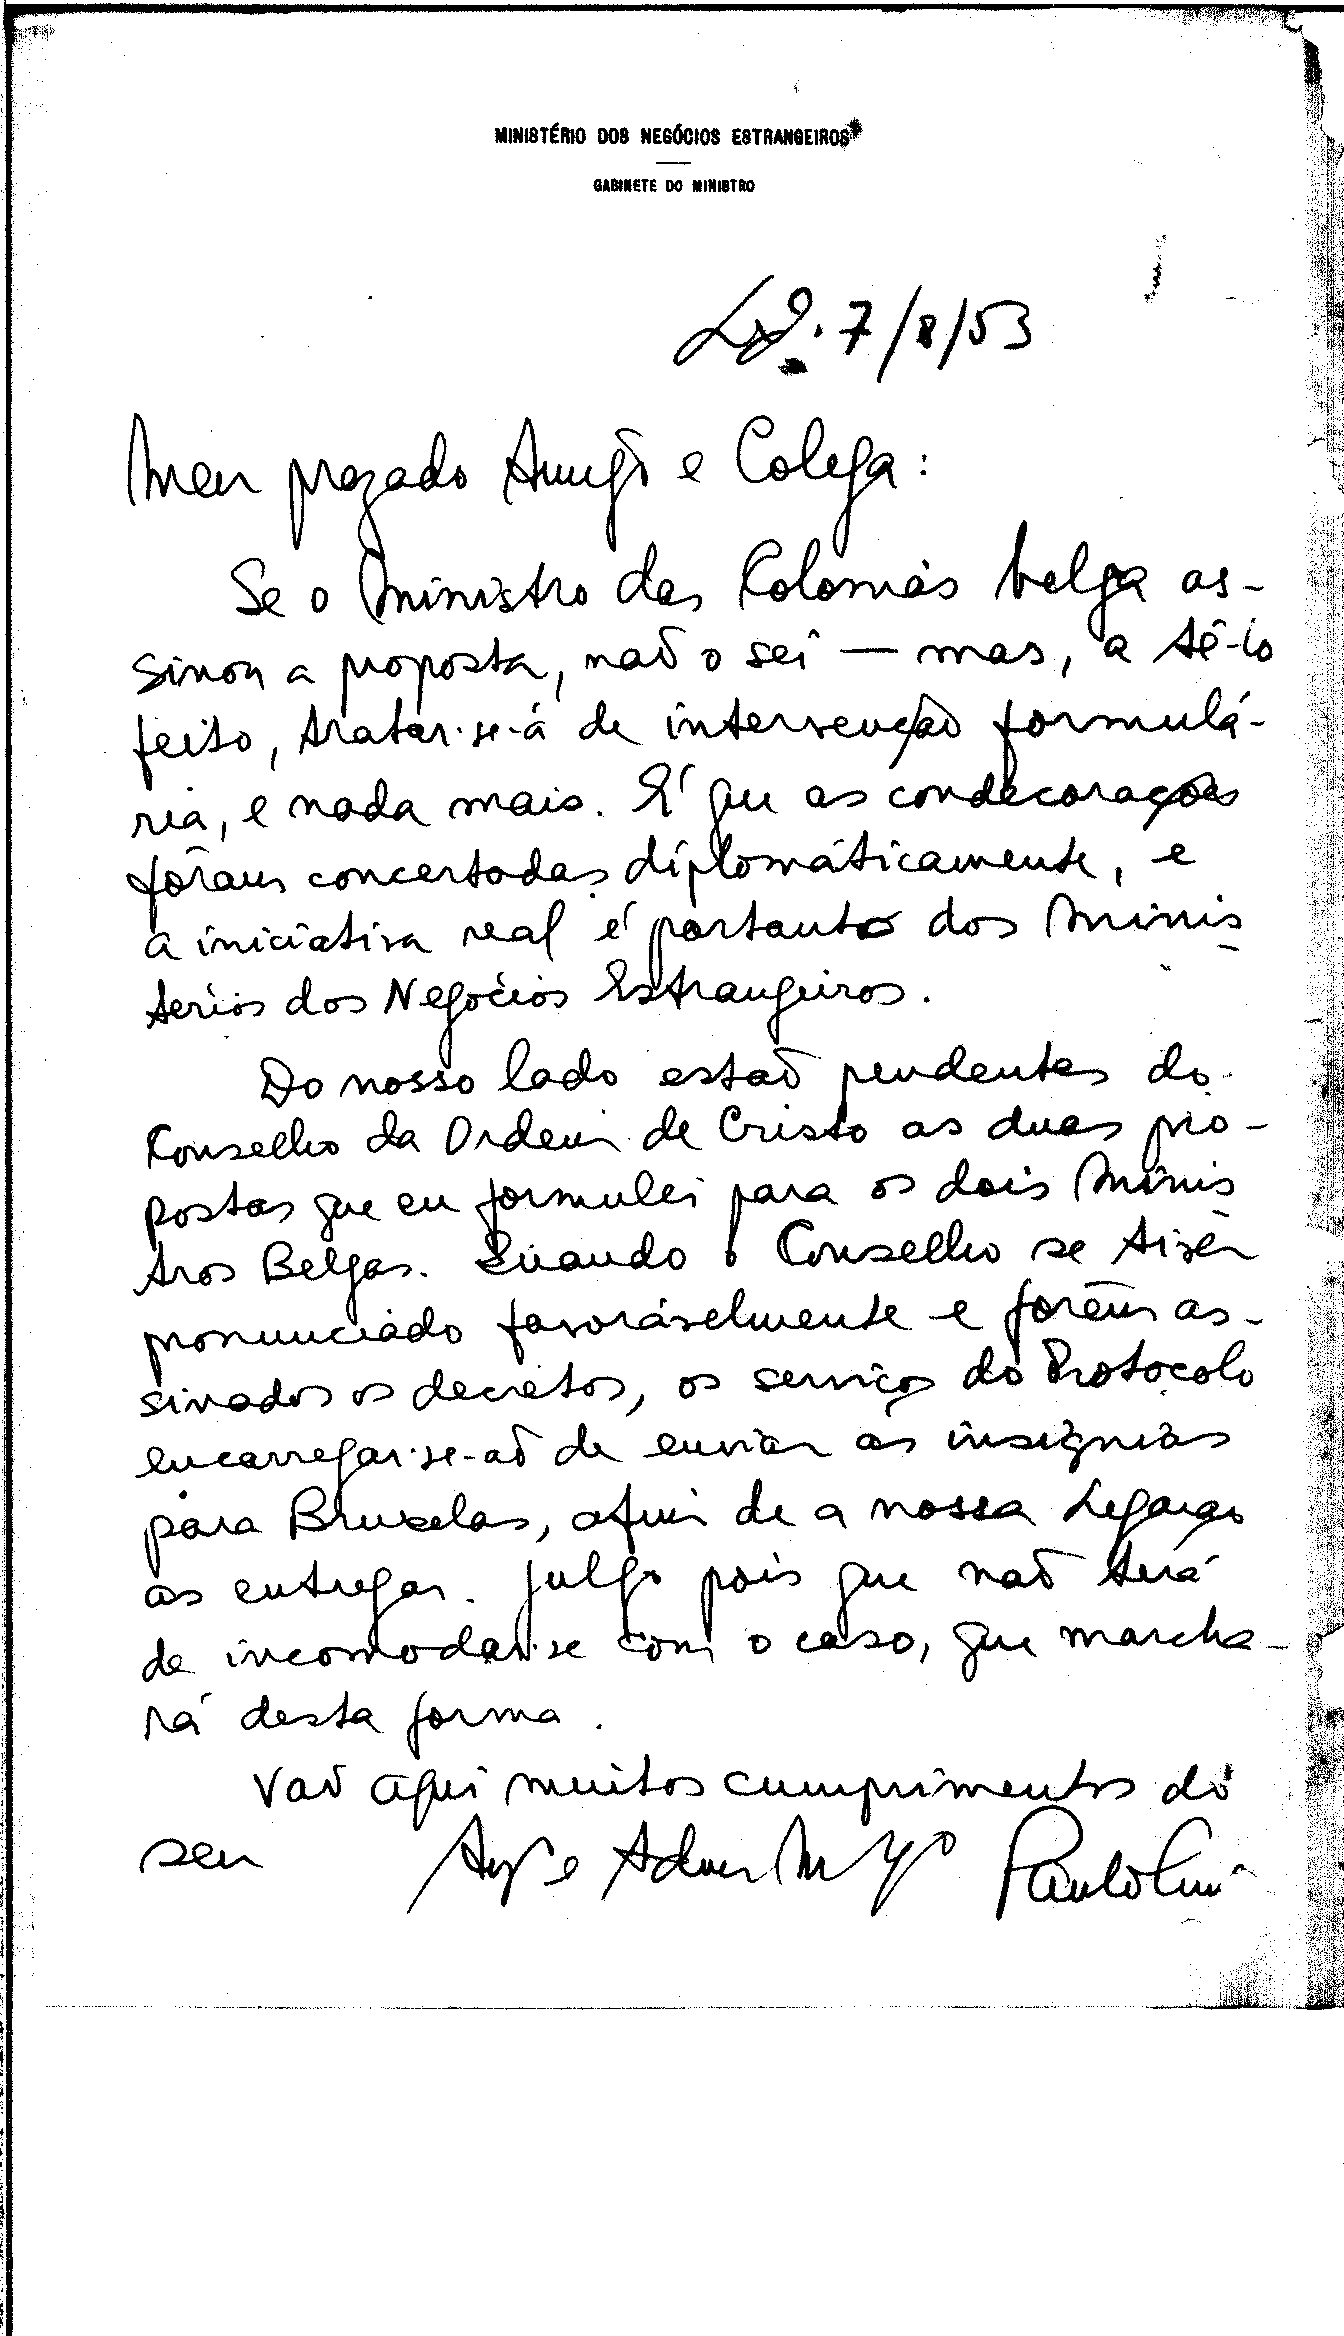 MINISTÉRIO DOS NEGÓCIOS ESTRANGEIROS
GABINETE DO MINISTRO
Lxª. 7/8/53
Meu prezado Amigo e Colega:
Se o Ministro das Colonias belga as-
sinou a proposta, não o sei — mas, a tê-lo
feito, tratar-se-á de intervenção formulá-
ria, e nada mais. É que as condecorações
fôram concertadas diplomáticamente, e
a iniciativa real é portanto dos Minis
terios dos Negócios Estrangeiros.
Do nosso lado estão pendentes do
Conselho da Ordem de Cristo as duas pro-
postas que eu formulei para os dois Minis
tros Belgas. Quando o Conselho se tiver
pronunciado favorávelmente e forem as-
sinados os decretos, os serviços do Protocolo
encarregar-se-ão de enviar as insignias
para Bruxelas, afim de a nossa Legação
as entregar. Julgo pois que não terá
de incomodar-se com o caso, que marcha-
rá desta forma.
Vão aqui muitos cumprimentos do
seu Amº e Adm. Mº